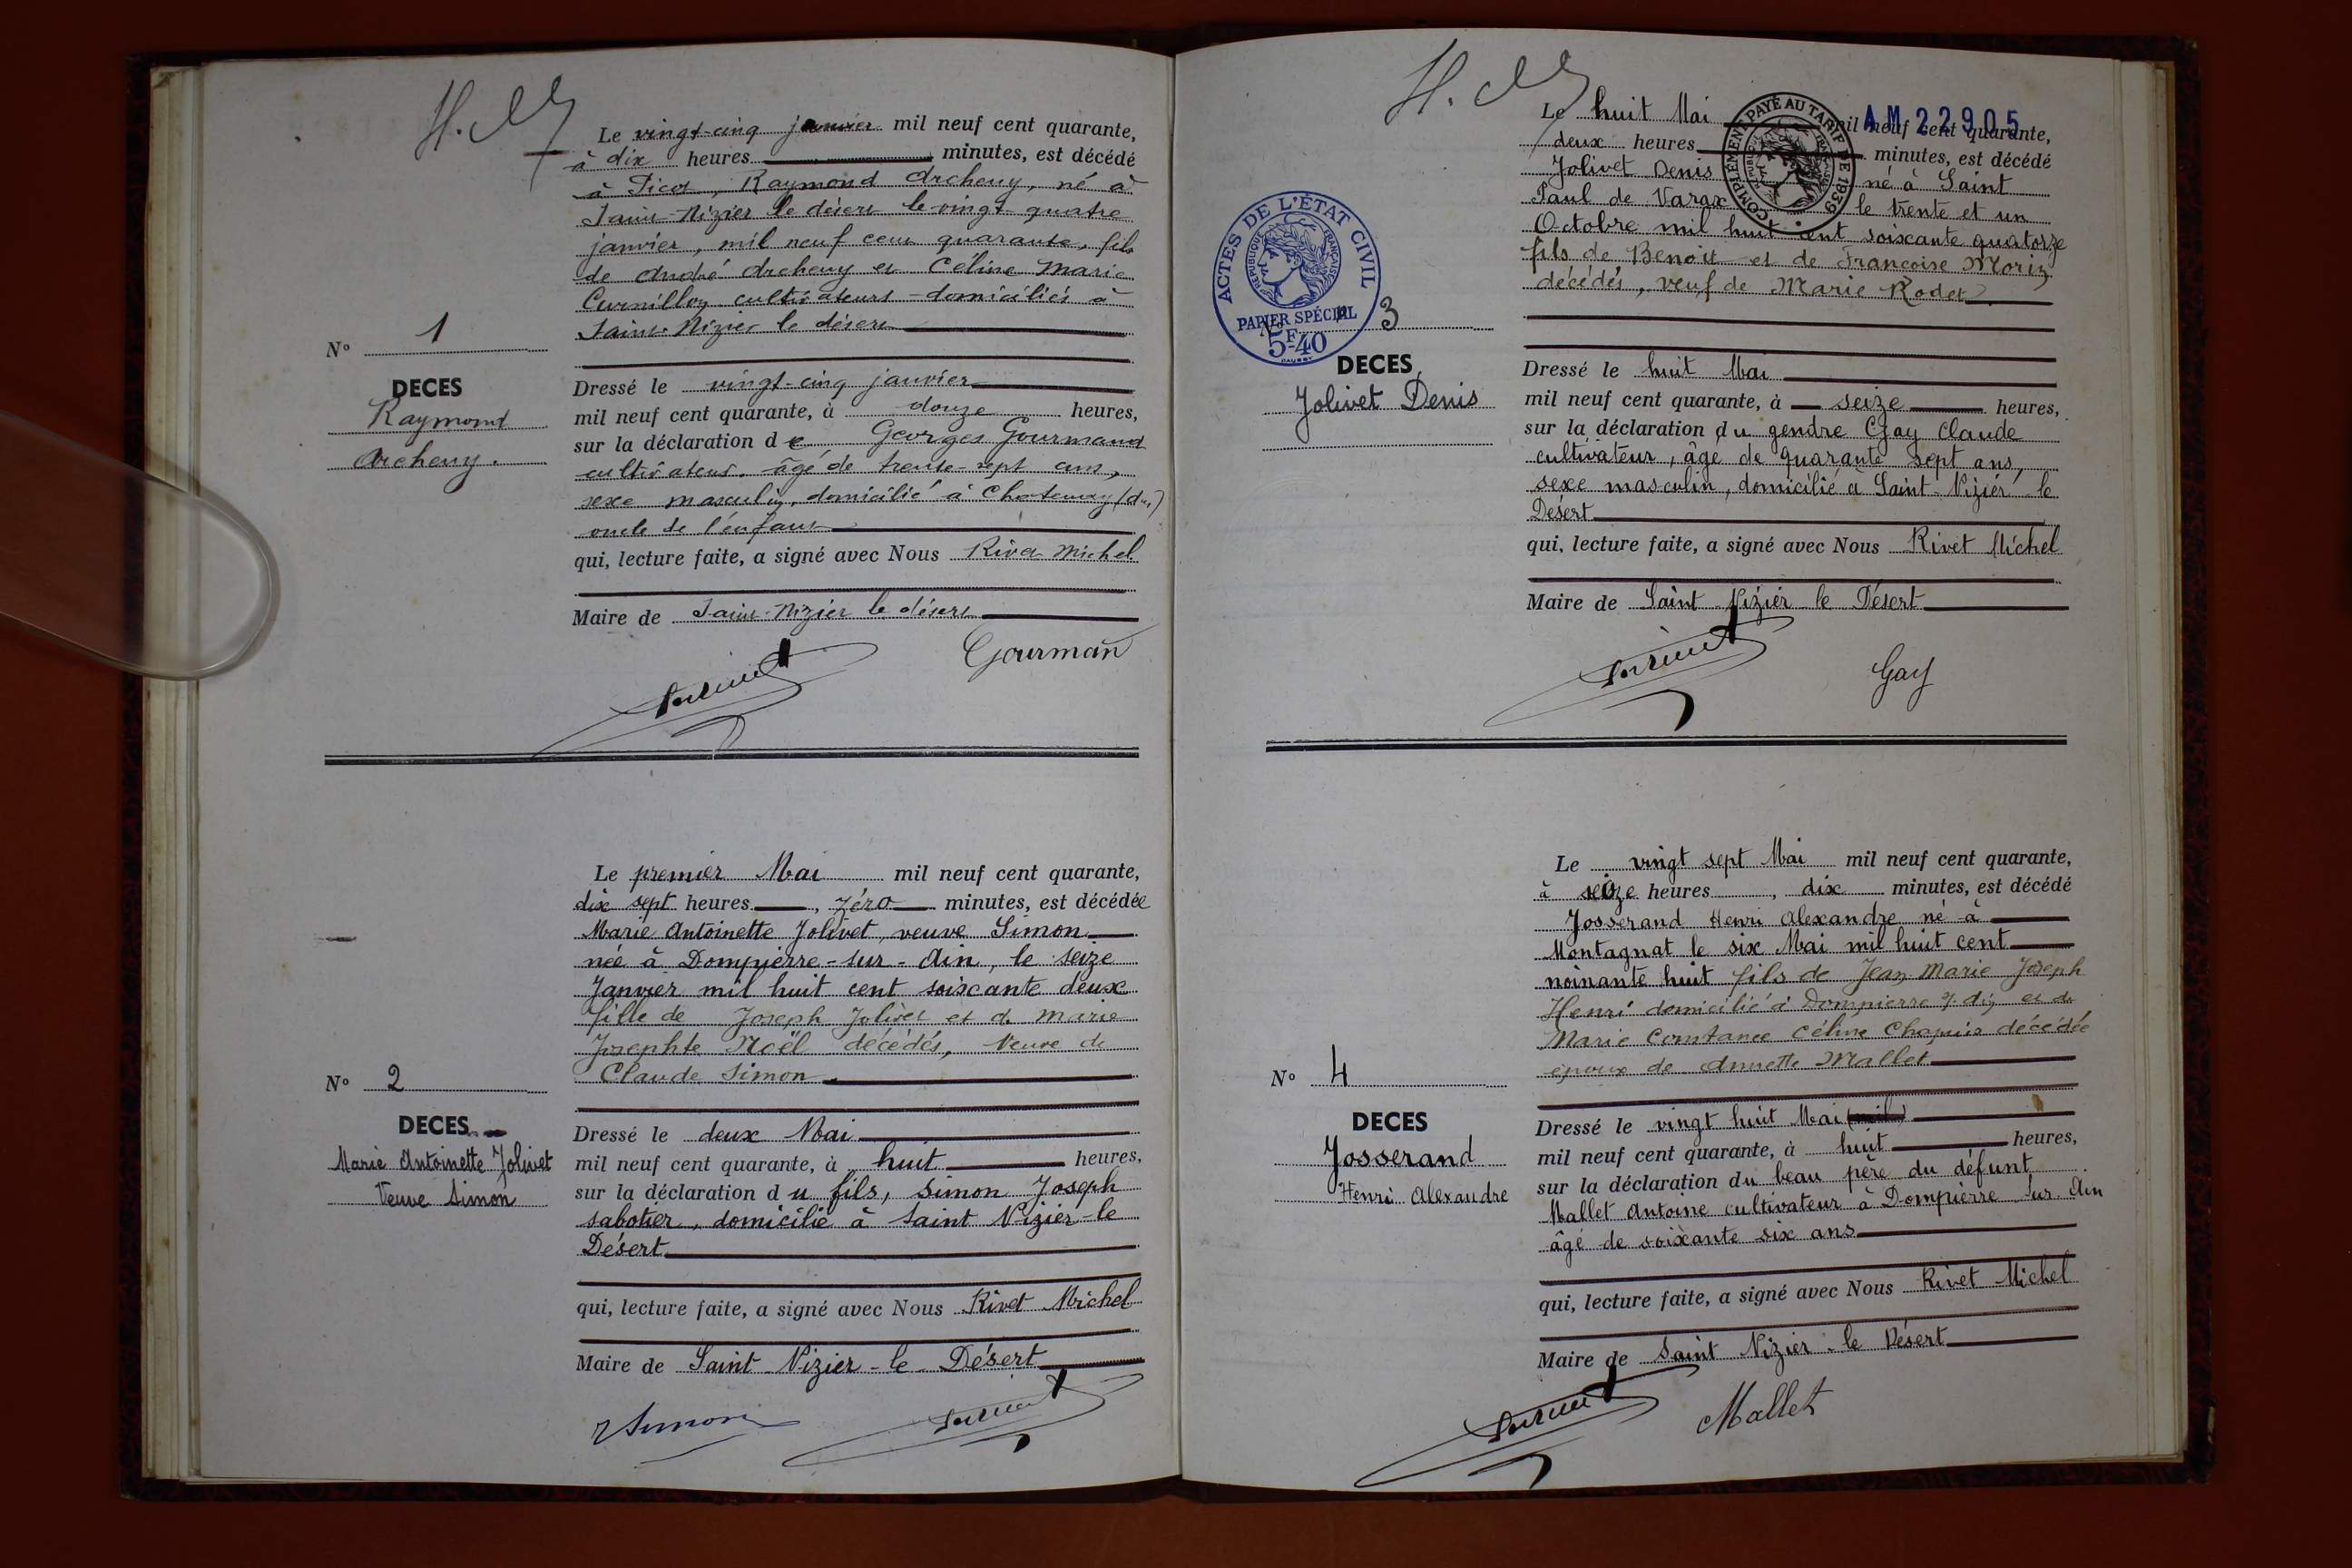 H.
Le vingt-cinq janvier mil neuf cent quarante,
à dix heures minutes, est décédé
à Picot, Raymond Archeny, né à
Saint-Nizier le désert le vingt quatre
janvier, mil neuf cent quarante, fils
de André Archeny et Céline Marie
Curnillon cultivateurs domiciliés à
Saint-Nizier le désert
N° 1
DECES
Raymond
Archeny.
Dressé le vingt-cinq janvier
mil neuf cent quarante, à douze heures,
sur la déclaration de Georges Gourmand
cultivateur, âgé de trente-sept ans,
sexe masculin, domicilié à Chatenay (Ain)
oncle de l'enfant
qui, lecture faite, a signé avec Nous Rivet Michel
Maire de Saint-Nizier le désert
Gourman
Le premier Mai mil neuf cent quarante,
dix sept heures, zéro minutes, est décédée
Marie Antoinette Jolivet, veuve Simon
née à Dompierre-sur-Ain, le seize
Janvier mil huit cent soixante deux
fille de Joseph Jolivet et de Marie
Josephte Noël décédés, Veuve de
Claude Simon.
N° 2
DECES
Marie Antoinette Jolivet
Veuve Simon
Dressé le deux Mai
mil neuf cent quarante, à huit heures,
sur la déclaration du fils, Simon Joseph
sabotier, domicilié à Saint Nizier-le
Désert
qui, lecture faite, a signé avec Nous Rivet Michel
Maire de Saint-Nizier-le-Désert
Simon
H.
AM 22905
COMPLÉMENT PAYÉ AU TARIF DE 1939
Le huit Mai mil neuf cent quarante,
deux heures minutes, est décédé
Jolivet Denis né à Saint
Paul de Varax le trente et un
Octobre mil huit cent soixante quatorze
fils de Benoit et de Françoise Morin
décédés, veuf de Marie Rodet
ACTES DE L'ÉTAT CIVIL
RÉPUBLIQUE FRANÇAISE
PAPIER SPÉCIAL
5F-40
N° 3
DECES
Jolivet Denis
Dressé le huit Mai
mil neuf cent quarante, à seize heures,
sur la déclaration du gendre Gay Claude
cultivateur, âgé de quarante sept ans,
sexe masculin, domicilié à Saint-Nizier le
Désert
qui, lecture faite, a signé avec Nous Rivet Michel
Maire de Saint-Nizier le Désert
Gay
Le vingt sept Mai mil neuf cent quarante,
à seize heures, dix minutes, est décédé
Josserand Henri Alexandre né à
Montagnat le six Mai mil huit cent
noinante huit fils de Jean Marie Joseph
Henri domicilié à Dompierre s. Ain et de
Marie Constance Céline Chapuis décédée
époux de Annette Mallet
N° 4
DECES
Josserand
Henri Alexandre
Dressé le vingt huit Mai (mil)
mil neuf cent quarante, à huit heures,
sur la déclaration du beau père du défunt
Mallet Antoine cultivateur à Dompierre sur Ain
âgé de soixante six ans
qui, lecture faite, a signé avec Nous Rivet Michel
Maire de Saint Nizier-le Désert
Mallet